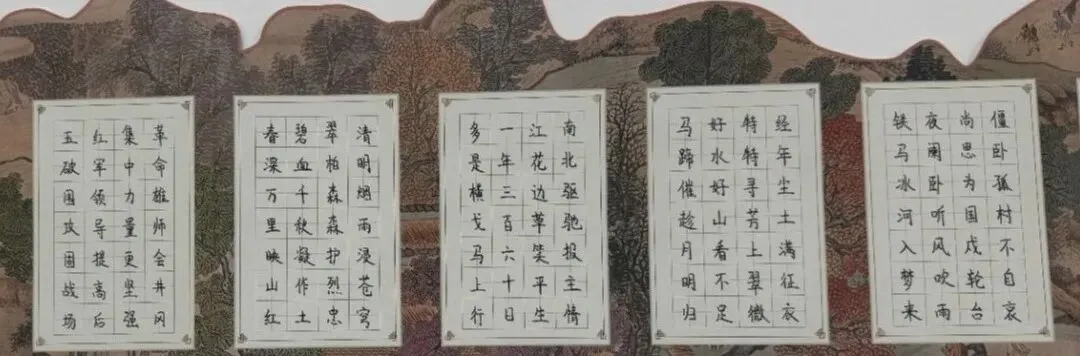 革命雄师会井冈
集中力量更坚强
红军领导提高后
五破围攻固战场
清明烟雨浸苍穹
翠柏森森护烈忠
碧血千秋凝作土
春深万里映山红
南北驱驰报主情
江花边草笑平生
一年三百六十日
多是横戈马上行
经年尘土满征衣
特特寻芳上翠微
好水好山看不足
马蹄催趁月明归
僵卧孤村不自哀
尚思为国戍轮台
夜阑卧听风吹雨
铁马冰河入梦来